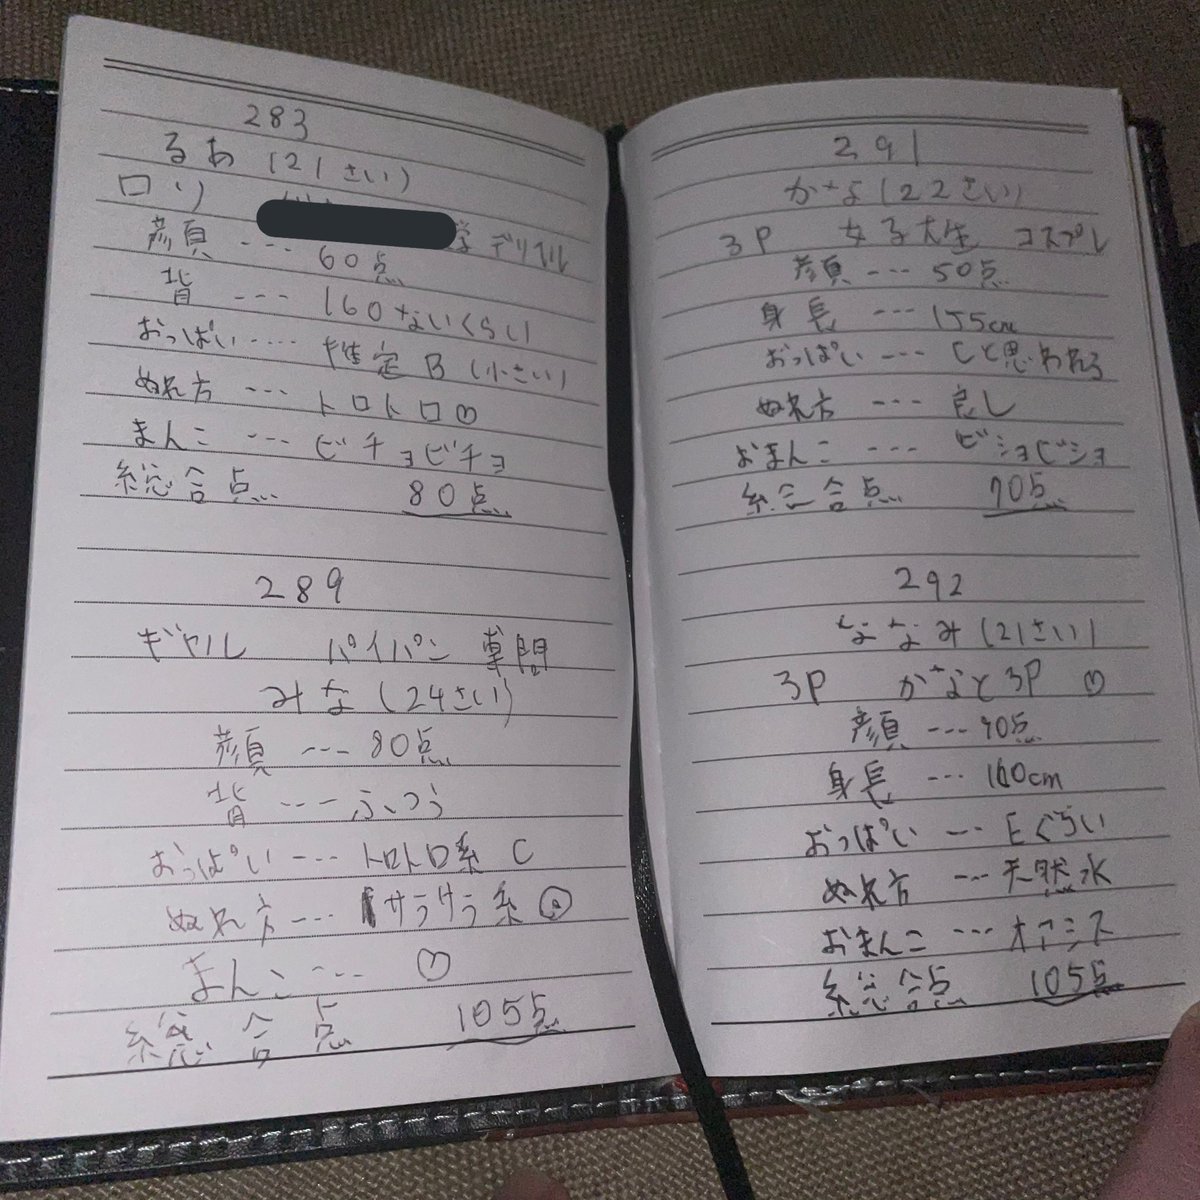 283
るあ (21さい)
ロリ 学デリヘル
顔 --- 60点
背 --- 160ないくらい
おっぱい ---- 推定B (小さい)
ぬれ方 --- トロトロ♡
まんこ --- ビチョビチョ
総合点 80点
289
ギャル パイパン 専門
みな (24さい)
顔 --- 80点
背 --- ふつう
おっぱい --- トロトロ系 C
ぬれ方 --- サラサラ系
まんこ --- ♡
総合点 105点
291
かな (22さい)
3P 女子大生 コスプレ
顔 --- 50点
身長 --- 155cm
おっぱい --- Cと思われる
ぬれ方 --- 良し
おまんこ --- ビショビショ
総合点 70点
292
ななみ (21さい)
3P かなと3P ♡
顔 --- 90点
身長 --- 160cm
おっぱい --- Eぐらい
ぬれ方 --- 天然水
おまんこ --- オアシス
総合点 105点